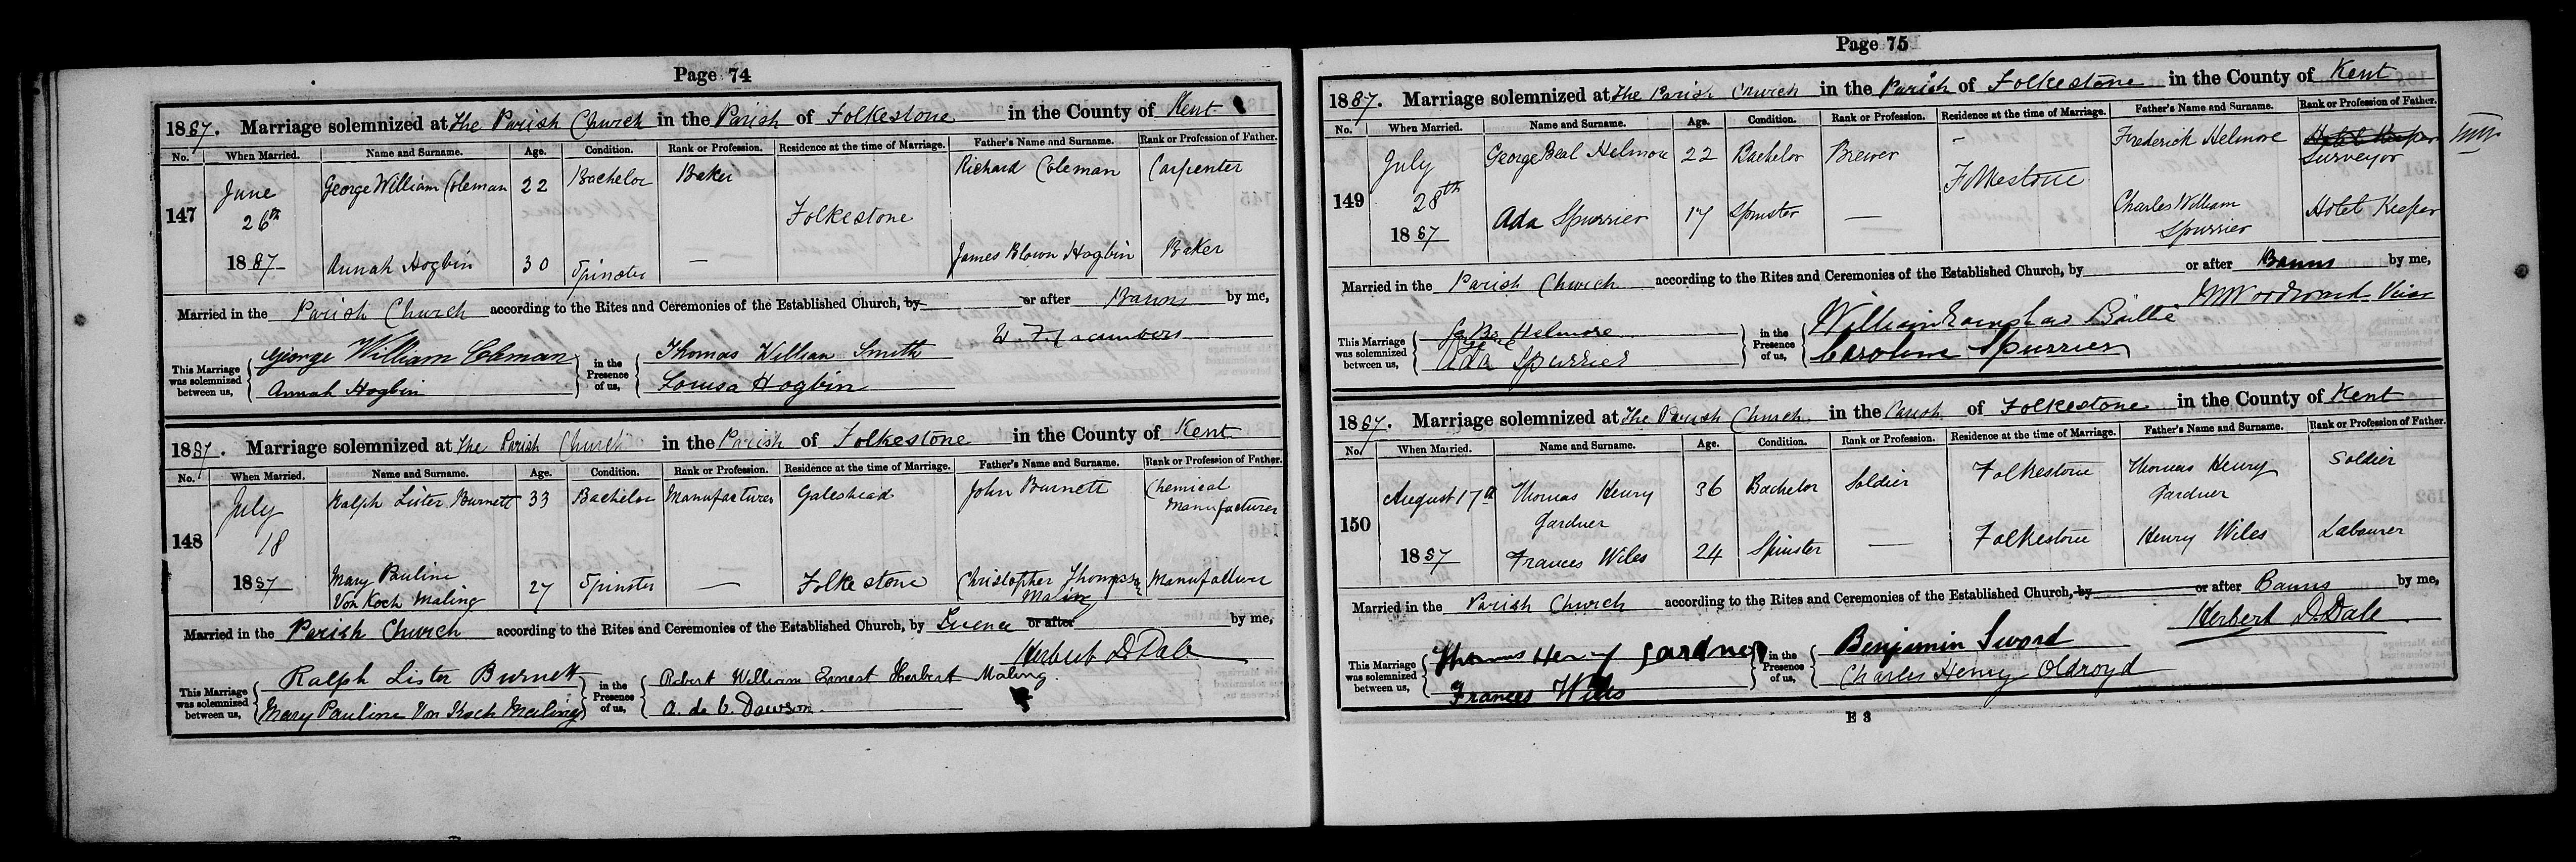 Page 74
1887. Marriage solemnized at The Parish Church in the Parish of Folkestone in the County of Kent
No. When Married. Name and Surname. Age. Condition. Rank or Profession. Residence at the time of Marriage. Father's Name and Surname. Rank or Profession of Father.
147 June 26th 1887 George William Coleman 22 Bachelor Baker Folkestone Richard Coleman Carpenter
Annah Hogbin 30 Spinster — James Hogbin Baker
Married in the Parish Church according to the Rites and Ceremonies of the Established Church, by or after Banns by me,
This Marriage was solemnized between us, George William Coleman in the Presence of us, Thomas William Smith
Annah Hogbin Louisa Hogbin
1887. Marriage solemnized at The Parish Church in the Parish of Folkestone in the County of Kent
No. When Married. Name and Surname. Age. Condition. Rank or Profession. Residence at the time of Marriage. Father's Name and Surname. Rank or Profession of Father.
148 July 18 1887 Ralph Lister Burnett 33 Bachelor Manufacturer Gateshead John Burnett Chemical Manufacturer
Mary Pauline Von Koch Maling 27 Spinster — Folkestone Christopher Thompson Maling Manufacturer
Married in the Parish Church according to the Rites and Ceremonies of the Established Church, by Licence or after by me,
Herbert D. Dale
This Marriage was solemnized between us, Ralph Lister Burnett in the Presence of us, Robert William Ernest Herbert Maling.
Mary Pauline Von Koch Maling A. de C. Dawson.
Page 75
1887. Marriage solemnized at The Parish Church in the Parish of Folkestone in the County of Kent
No. When Married. Name and Surname. Age. Condition. Rank or Profession. Residence at the time of Marriage. Father's Name and Surname. Rank or Profession of Father.
149 July 28th 1887 George Beal Helmore 22 Bachelor Brewer Folkestone Frederick Helmore Hotel Keeper Surveyor
Ada Spurrier 17 Spinster — Charles William Spurrier Hotel Keeper
Married in the Parish Church according to the Rites and Ceremonies of the Established Church, by or after Banns by me,
M Woodward Vicar
This Marriage was solemnized between us, Helmore in the Presence of us, William
Ada Spurrier Caroline Spurrier
1887. Marriage solemnized at The Parish Church in the Parish of Folkestone in the County of Kent
No. When Married. Name and Surname. Age. Condition. Rank or Profession. Residence at the time of Marriage. Father's Name and Surname. Rank or Profession of Father.
150 August 17th 1887 Thomas Henry Gardner 36 Bachelor Soldier Folkestone Thomas Henry Gardner Soldier
Frances Wiles 24 Spinster — Folkestone Henry Wiles Labourer
Married in the Parish Church according to the Rites and Ceremonies of the Established Church, by or after Banns by me,
Herbert D. Dale
This Marriage was solemnized between us, Thomas Henry Gardner in the Presence of us, Benjamin Sword
Frances Wiles Charles Henry Oldroyd
E 3